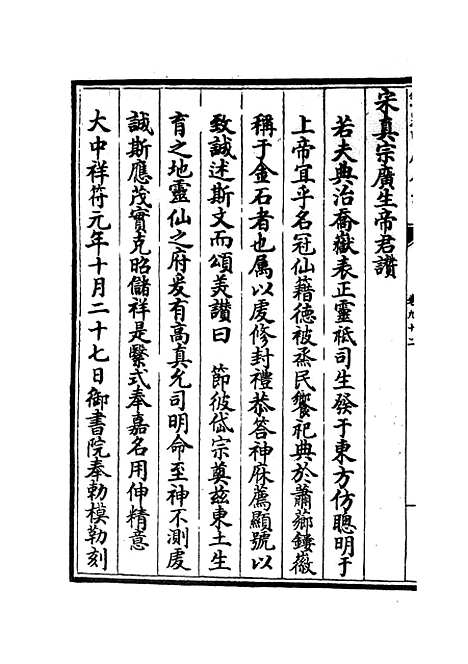 宋真宗廣生帝君讚
若夫典治喬嶽表正靈祇司生發于東方仿聰明于
上帝宜乎名冠仙籍德被烝民饗祀典於蕭薌鏤徽
稱于金石者也属以虔修封禮恭答神庥薦顯號以
致誠述斯文而頌美讚曰　節彼岱宗奠茲東土生
育之地靈仙之府爰有高真允司明命至神不測虔
誠斯應茂實克昭儲祥是繄式奉嘉名用伸精意
大中祥符元年十月二十七日御書院奉勅模勒刻
卷九十二